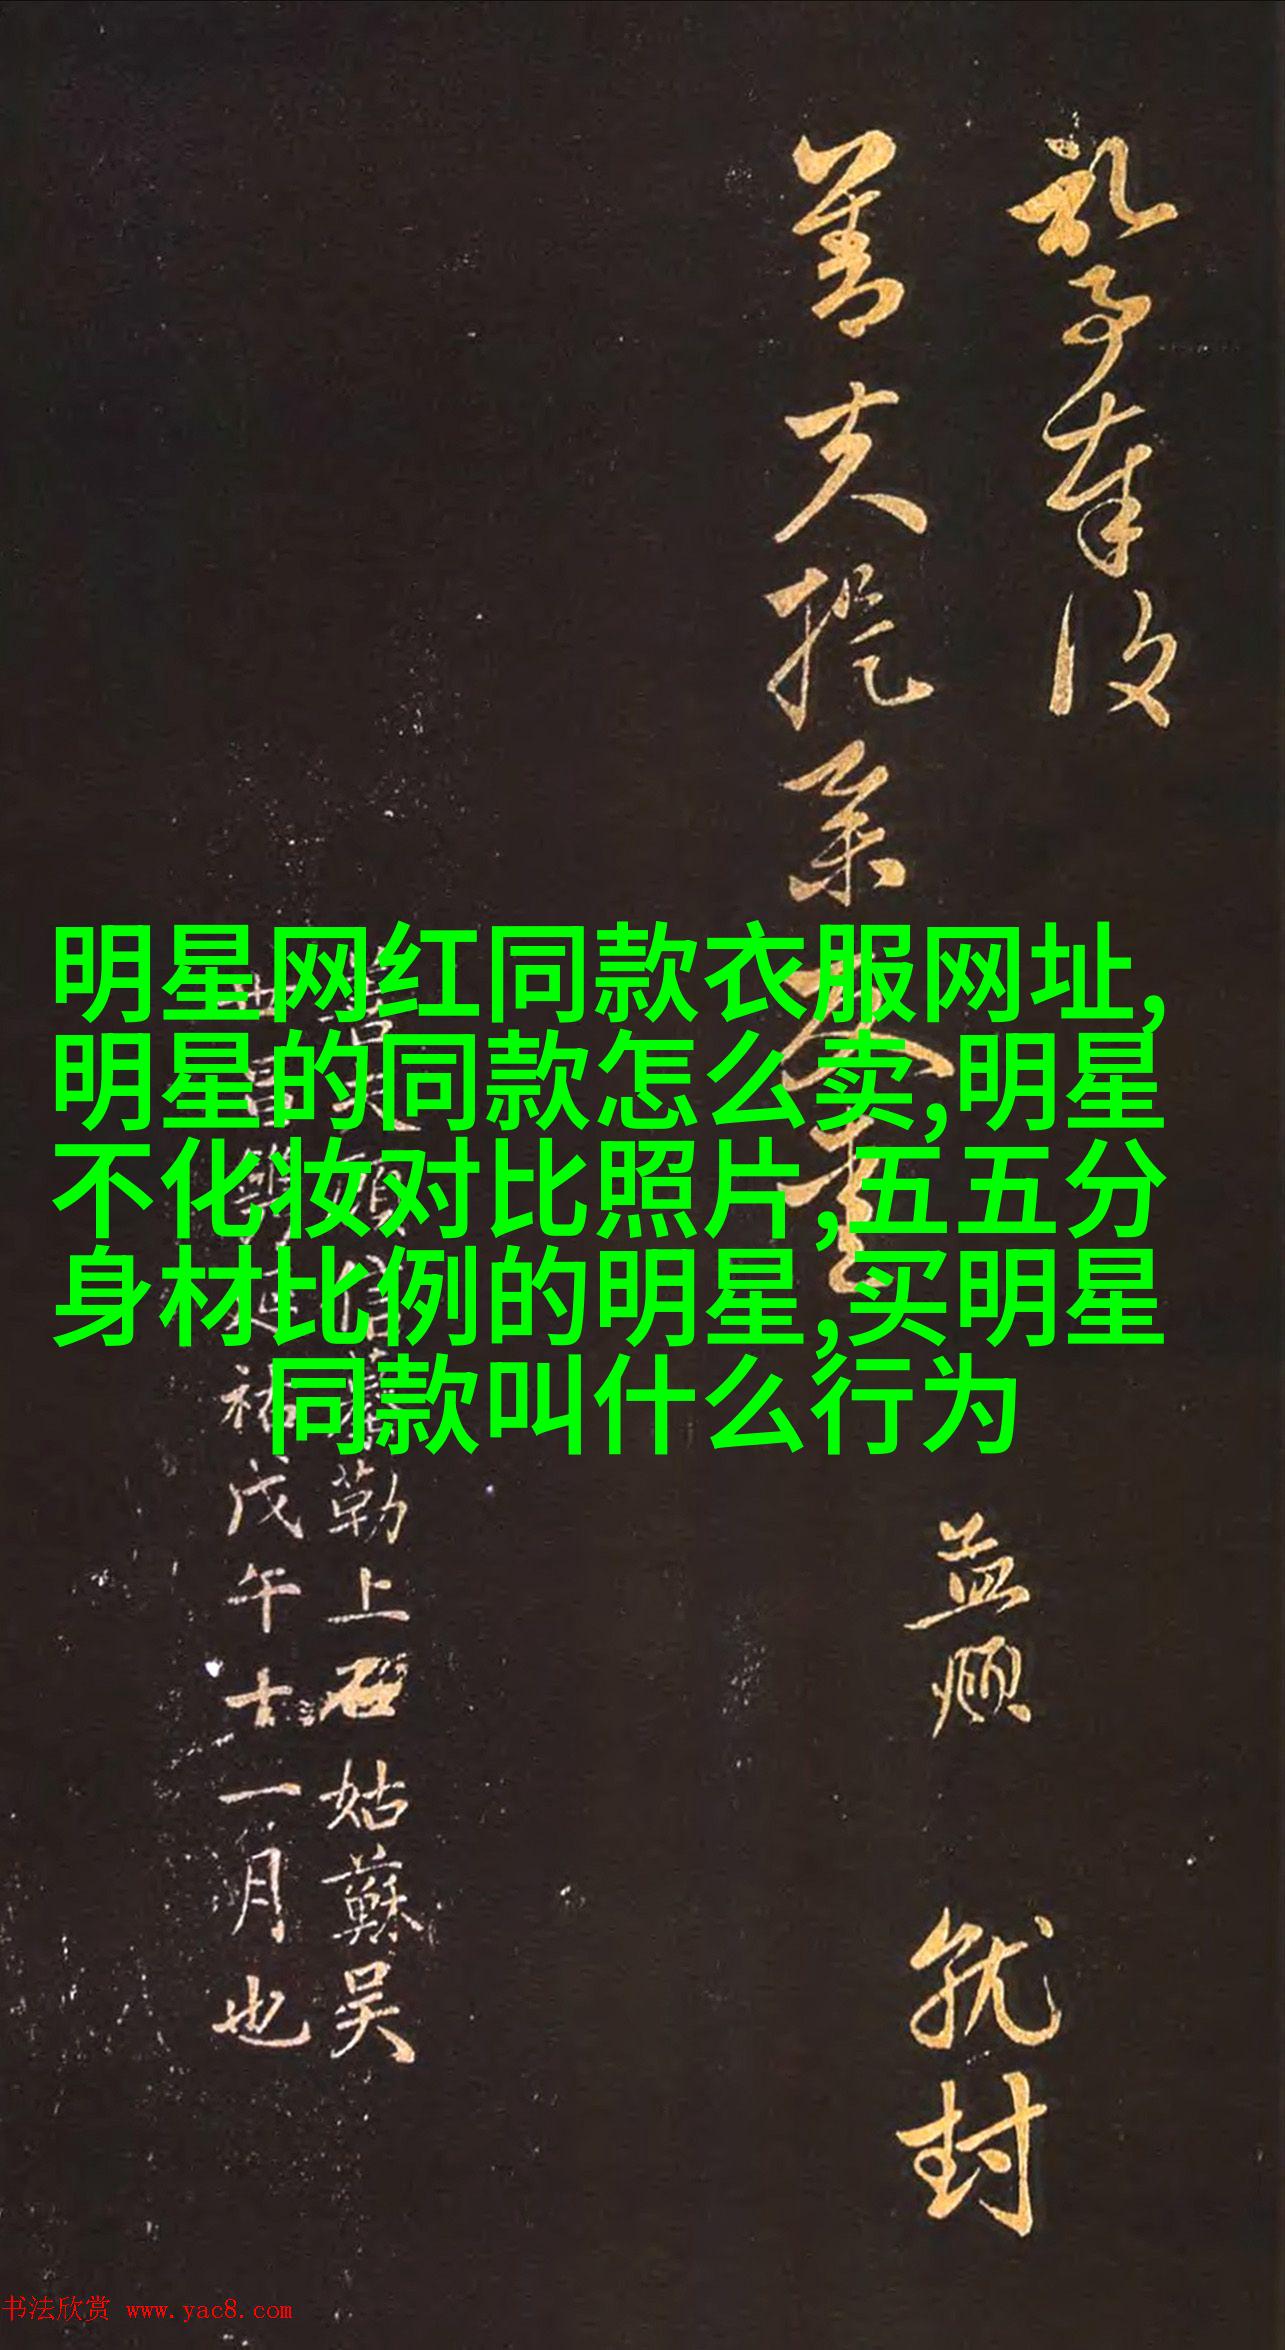 礼部奉议
善夫提亲
益顺
就封
勒上石姑蘇吴
祐戊午十一月也
明星网红同款衣服网址,
明星的同款怎么卖,明星
不化妆对比照片,五五分
身材比例的明星,买明星
同款叫什么行为
书法欣赏 www.yac8.com